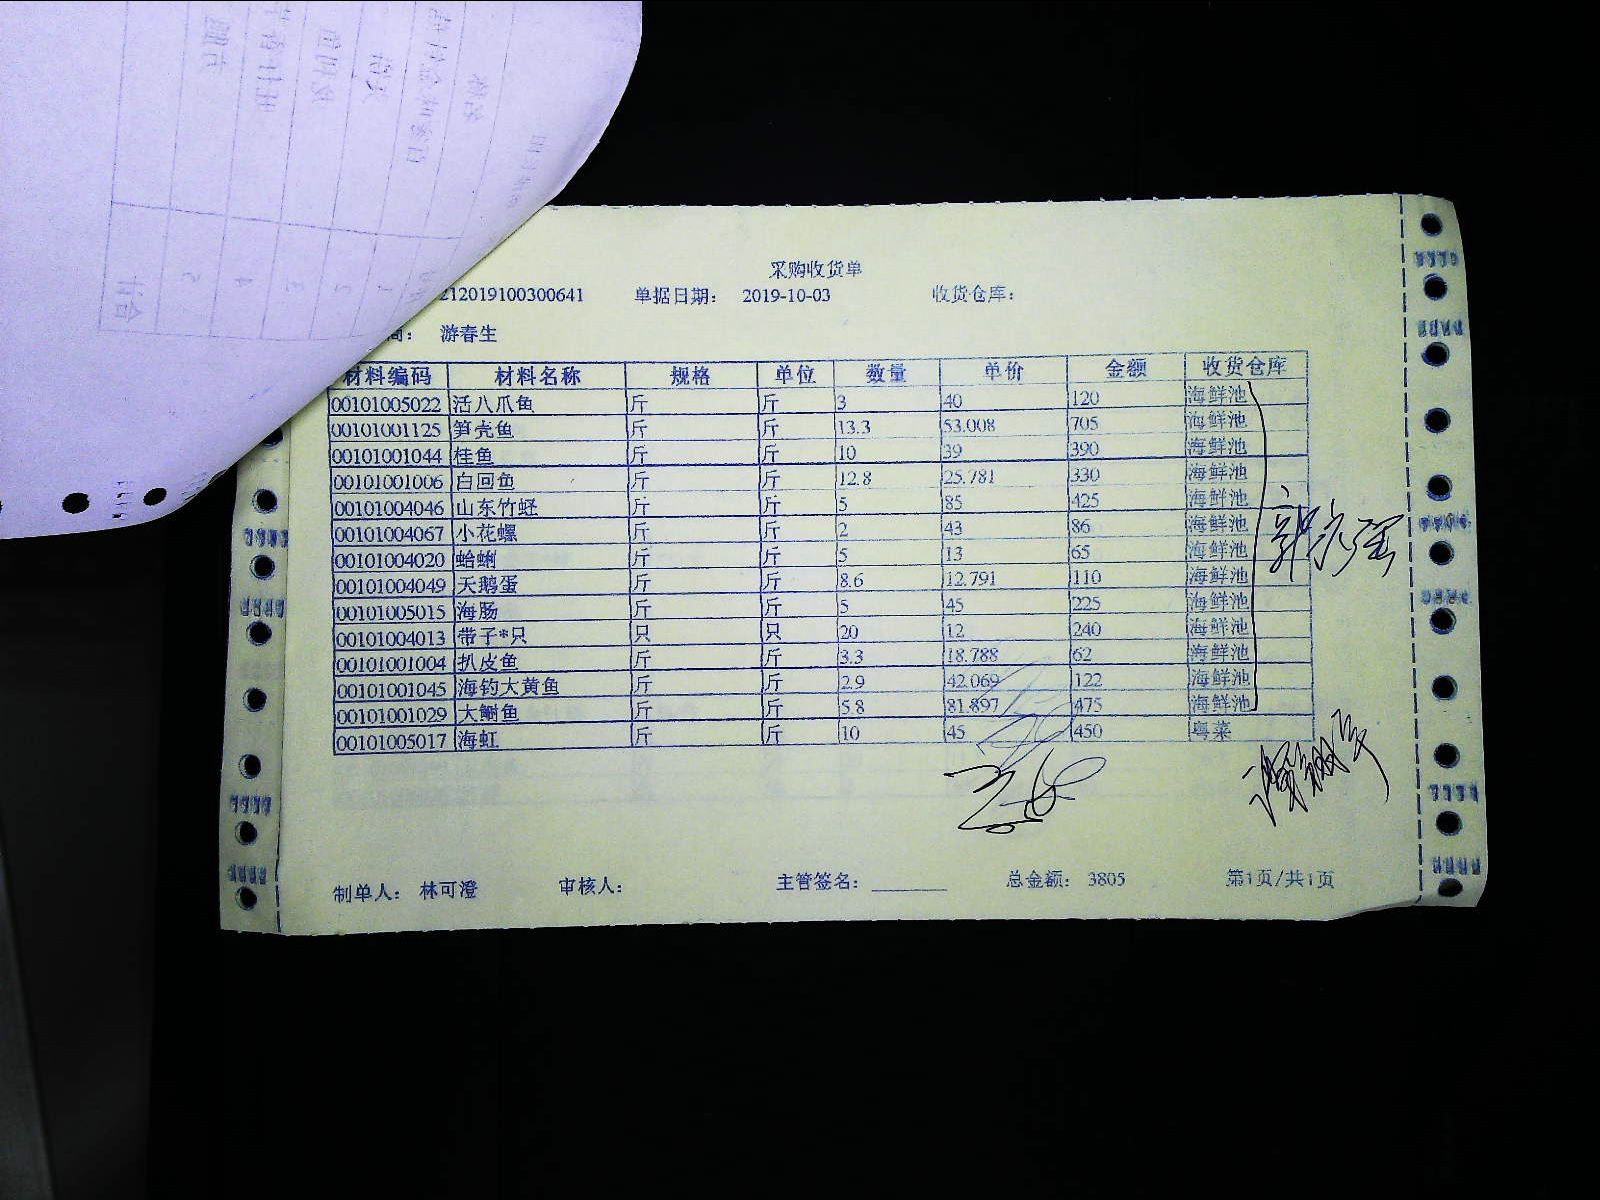 采购收货单
212019100300641 单据日期: 2019-10-03 收货仓库:
商: 游春生
材料编码 材料名称 规格 单位 数量 单价 金额 收货仓库
00101005022 活八爪鱼 斤 斤 3 40 120 海鲜池
00101001125 笋壳鱼 斤 斤 13.3 53.008 705 海鲜池
00101001044 桂鱼 斤 斤 10 39 390 海鲜池
00101001006 白回鱼 斤 斤 12.8 25.781 330 海鲜池
00101004046 山东竹蛏 斤 斤 5 85 425 海鲜池
00101004067 小花螺 斤 斤 2 43 86 海鲜池
00101004020 蛤蜊 斤 斤 5 13 65 海鲜池
00101004049 天鹅蛋 斤 斤 8.6 12.791 110 海鲜池
00101005015 海肠 斤 斤 5 45 225 海鲜池
00101004013 带子*只 只 只 20 12 240 海鲜池
00101001004 扒皮鱼 斤 斤 3.3 18.788 62 海鲜池
00101001045 海钓大黄鱼 斤 斤 2.9 42.069 122 海鲜池
00101001029 大鲥鱼 斤 斤 5.8 81.897 475 海鲜池
00101005017 海虹 斤 斤 10 45 450 粤菜
制单人: 林可澄 审核人: 主管签名: 总金额: 3805 第1页/共1页